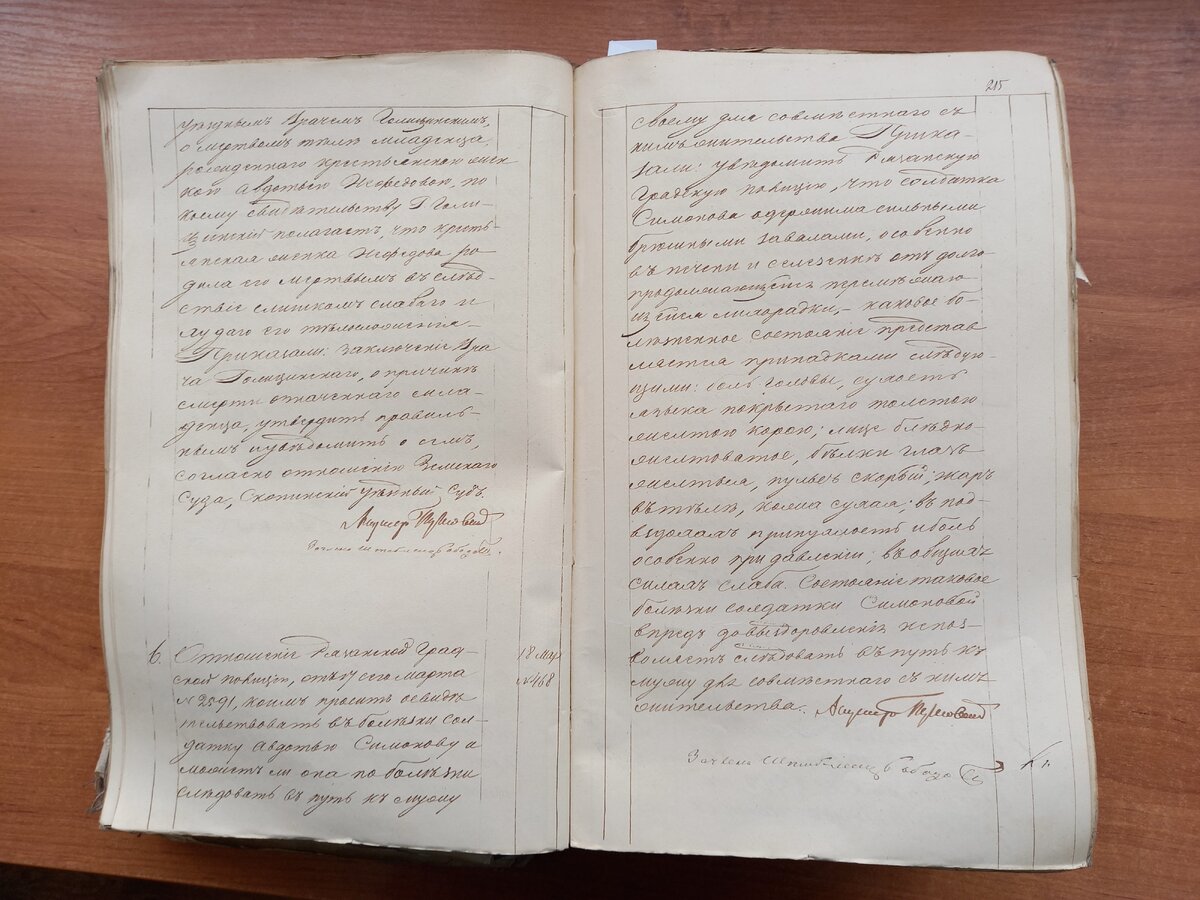 уѣзднымъ Врачемъ Голицинскимъ,
о мертвомъ тѣлѣ младенца,
рожденнаго крестьянскою жен
кою Авдотьею Ѳередовою, по
коему свидѣтельству Г. Голи-
цинскій полагаетъ, что кресть-
янская женка Ѳередова ро-
дила его мертвымъ въ слѣд-
ствіе слишкомъ слабаго и
худаго его тѣлосложенія.-
Приказали: заключеніе Вра-
ча Голицинскаго, о причинѣ
смерти означеннаго мла-
денца, утвердить правиль-
нымъ и увѣдомить о семъ,
согласно отношенію Земскаго
Суда, Скопинскій Уѣздный Судъ.
6. Отношеніе Рязанской Град-
ской полиціи, отъ 17 сего марта
№ 2591, коимъ проситъ освидѣ
тельствовать въ болѣзни сол-
датку Авдотью Симонову и
можетъ ли она по болѣзни
слѣдовать въ путь къ мужу
18 Мар
№ 468
215
своему для совмѣстнаго съ
нимъ жительства. Прика-
зали: увѣдомить Рязанскую
Градскую полицію, что солдатка
Симонова одержима сильными
брюшными завалами, особенно
въ печени и селезенкѣ отъ долго-
продолжающейся перемѣжаю-
щейся лихорадки,- каковое бо-
лѣзненное состояніе представ
ляется припадками слѣдую-
щими: боль головы, сухость
языка покрытаго толстою
желтою корою; лице блѣдно-
желтоватое, бѣлки глазъ
желтыя, пульсъ скорый; жаръ
въ тѣлѣ, кожа сухая; въ под-
вздохахъ припухлость и боль
особенно при давленіи; въ общихъ
силахъ слаба. Состояніе таковое
болѣзни солдатки Симоновой
впредь до выздоровленія непоз-
воляетъ слѣдовать въ путь къ
мужу для совмѣстнаго съ нимъ
жительства.